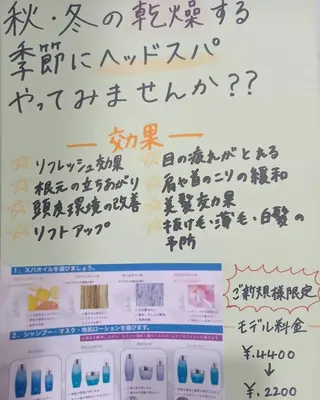 秋・冬の乾燥する
季節にヘッドスパ
やってみませんか??
効果
リフレッシュ効果
根元の立ちあがり
頭皮環境の改善
リフトアップ
目の疲れがとれる
肩や首のこりの緩和
美髪効果
抜け毛・薄毛・白髪の
予防
1. スパオイルを選びましょう。
2. シャンプー・マスク・地肌ローションを選びます。
ご新規様限定
モデル料金
¥.4400
↓
¥.2200